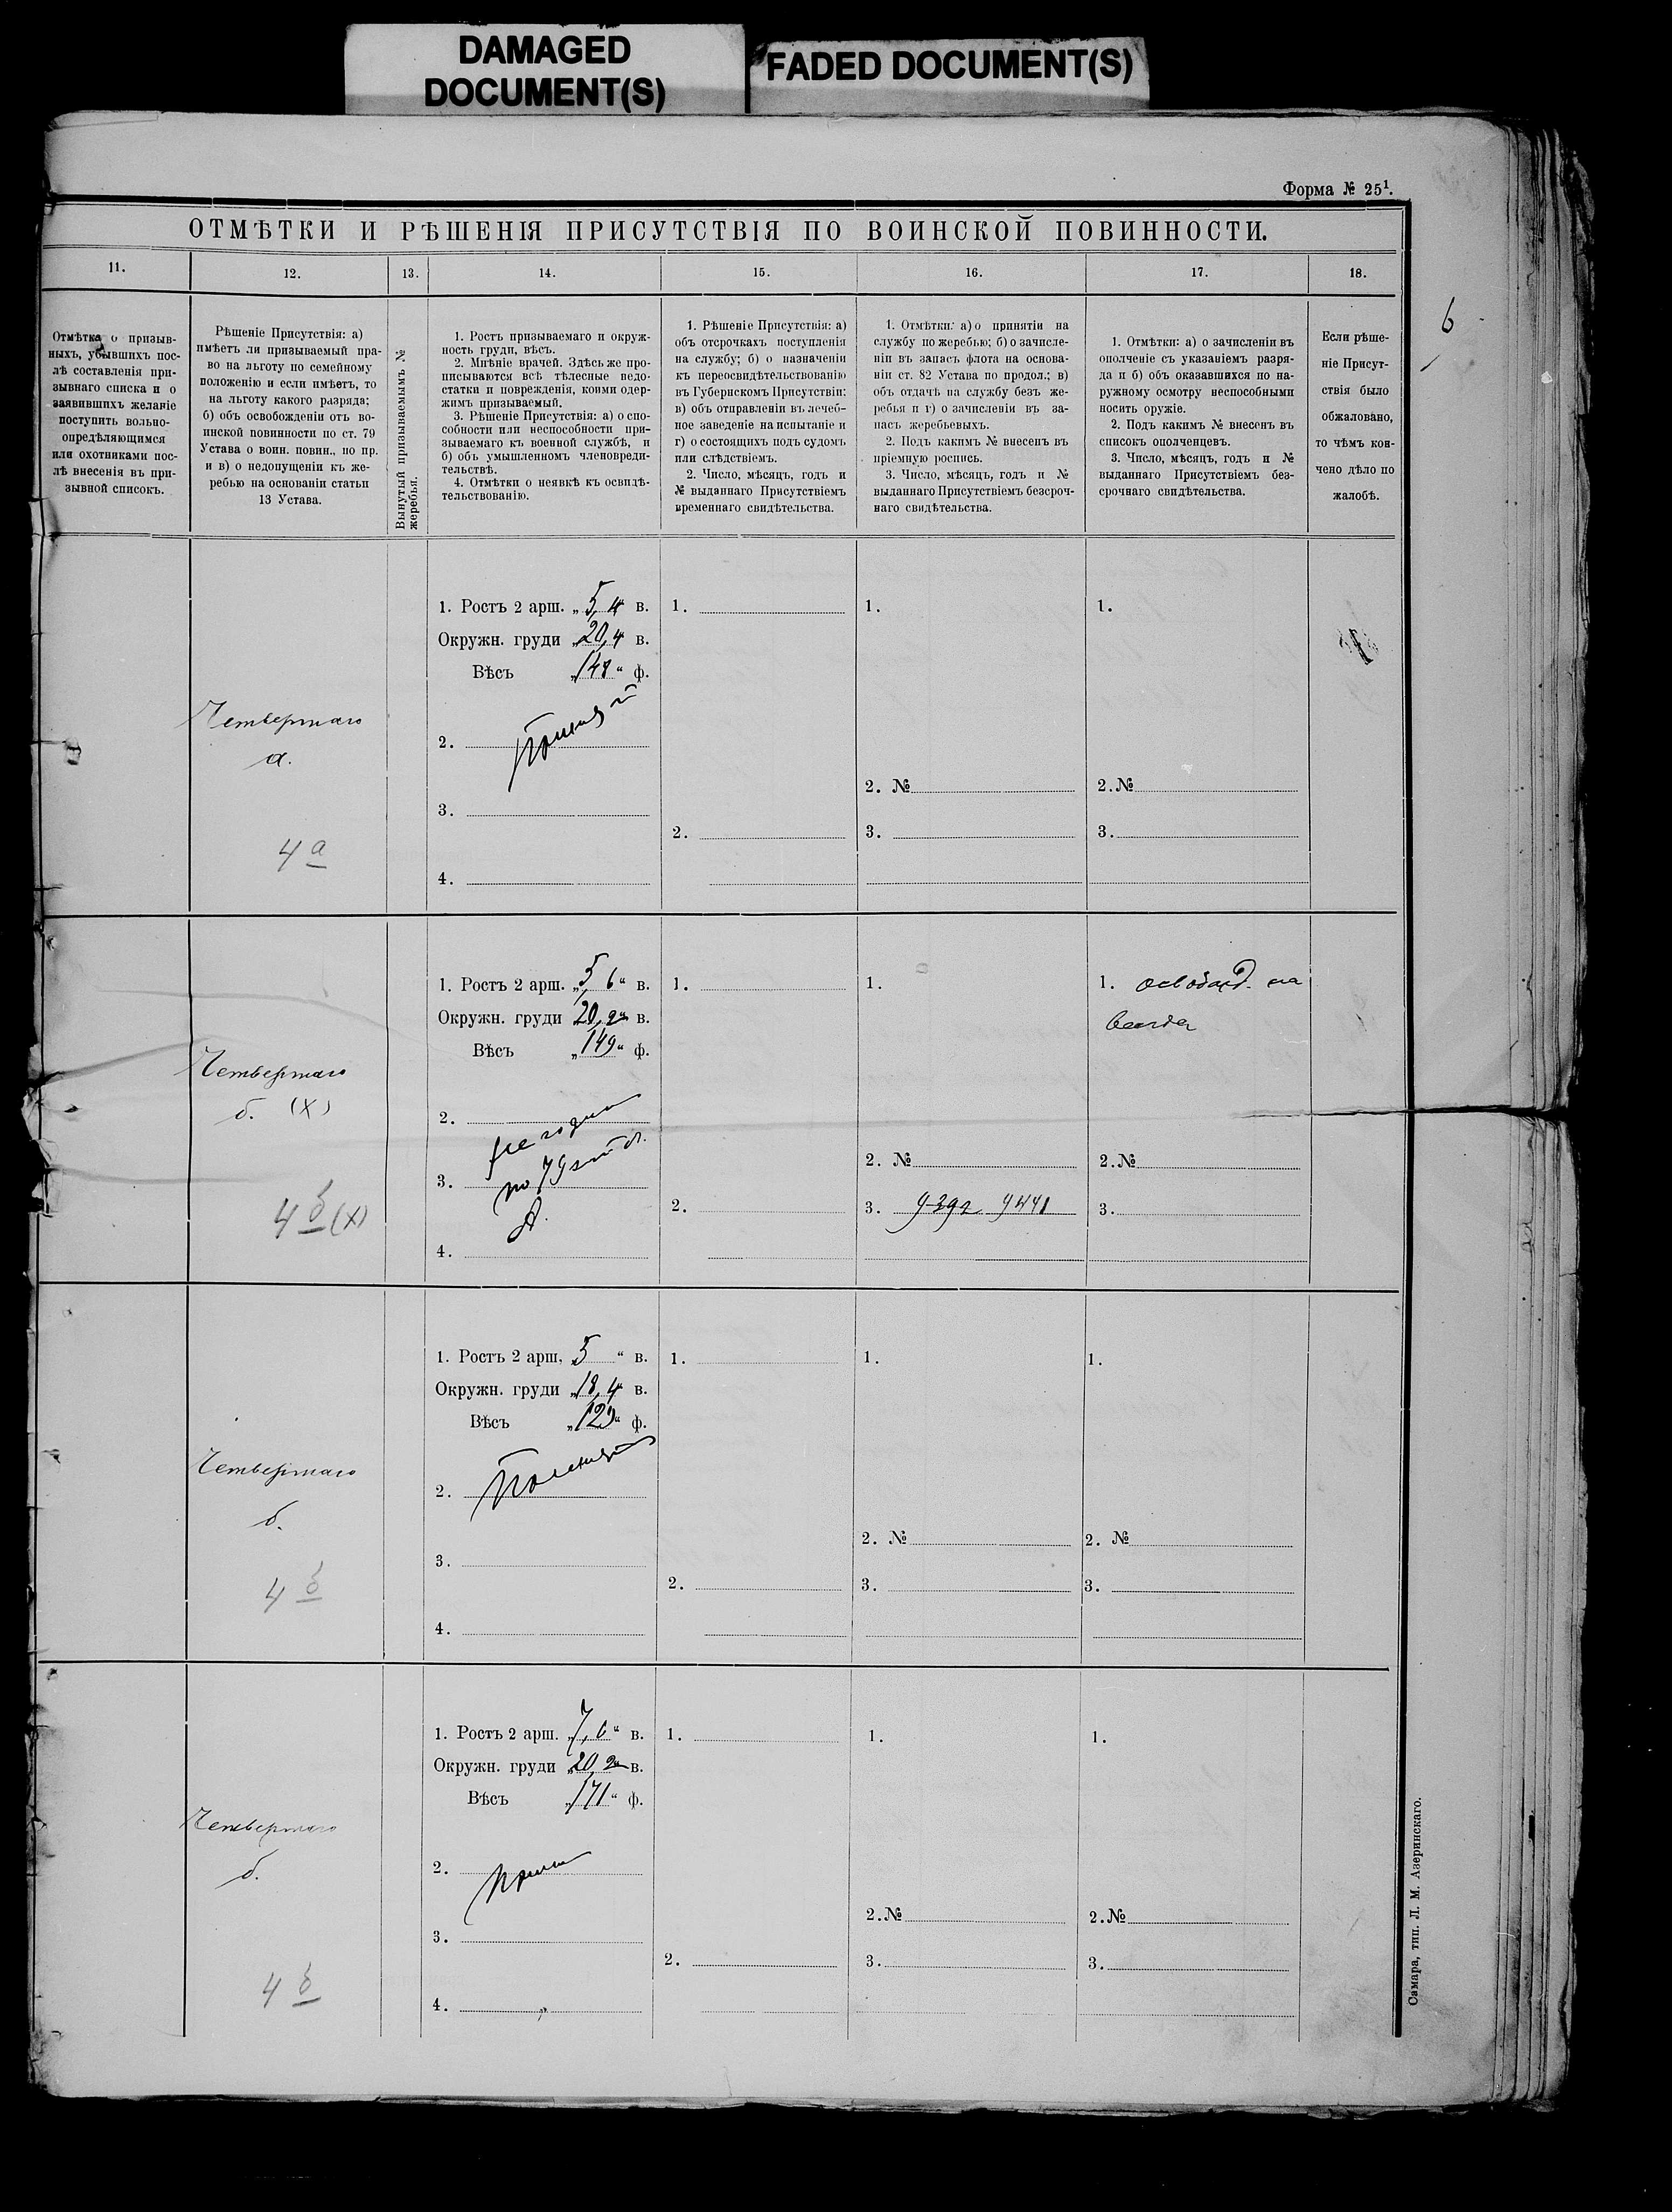 DAMAGED
DOCUMENT(S)
FADED DOCUMENT(S)
Форма № 25¹.
6
ОТМѢТКИ И РѢШЕНІЯ ПРИСУТСТВІЯ ПО ВОИНСКОЙ ПОВИННОСТИ.
11.
12.
13.
14.
15.
16.
17.
18.
Отмѣтка о призыв-
ныхъ, убывшихъ пос-
лѣ составленія при-
зывнаго списка и о
заявившихъ желаніе
поступить вольно-
опредѣляющимся
или охотниками пос-
лѣ внесенія въ при-
зывной списокъ.
Рѣшеніе Присутствія: а)
имѣетъ ли призываемый пра-
во на льготу по семейному
положенію и если имѣетъ, то
на льготу какого разряда;
б) объ освобожденіи отъ во-
инской повинности по ст. 79
Устава о воин. повин., по пр.
и в) о недопущеніи къ же-
ребью на основаніи статьи
13 Устава.
Вынутый призываемымъ №
жеребья.
1. Ростъ призываемаго и окруж-
ность груди, вѣсъ.
2. Мнѣніе врачей. Здѣсь же про-
писываются всѣ тѣлесные недо-
статки и поврежденія, коими одер-
жимъ призываемый.
3. Рѣшеніе Присутствія: а) о спо-
собности или неспособности при-
зываемаго къ военной службѣ, и
б) объ умышленномъ членовреди-
тельствѣ.
4. Отмѣтки о неявкѣ къ освидѣ-
тельствованію.
1. Рѣшеніе Присутствія: а)
объ отсрочкахъ поступленія
на службу; б) о назначеніи
къ переосвидѣтельствованію
въ Губернскомъ Присутствіи;
в) объ отправленіи въ лечеб-
ное заведеніе на испытаніе и
г) о состоящихъ подъ судомъ
или слѣдствіемъ.
2. Число, мѣсяцъ, годъ и
№ выданнаго Присутствіемъ
временнаго свидѣтельства.
1. Отмѣтки: а) о принятіи на
службу по жеребью; б) о зачисле-
ніи въ запасъ флота на основа-
ніи ст. 82 Устава по продол.; в)
объ отдачѣ на службу безъ же-
ребья и г) о зачисленіи въ за-
пасъ жеребьевыхъ.
2. Подъ какимъ № внесенъ въ
пріемную роспись.
3. Число, мѣсяцъ, годъ и №
выданнаго Присутствіемъ безсроч-
наго свидѣтельства.
1. Отмѣтки: а) о зачисленіи въ
ополченіе съ указаніемъ разря-
да и б) объ оказавшихся по на-
ружному осмотру неспособными
носить оружіе.
2. Подъ какимъ № внесенъ въ
списокъ ополченцевъ.
3. Число, мѣсяцъ, годъ и №
выданнаго Присутствіемъ без-
срочнаго свидѣтельства.
Если рѣше-
ніе Присут-
ствія было
обжаловано,
то чѣмъ кон-
чено дѣло по
жалобѣ.
Четвертаго
а.
4 а
1. Ростъ 2 арш. „5,4“ в.
Окружн. груди „20,4“ в.
Вѣсъ „148“ ф.
2.
3.
4.
1.
2.
1.
2. №
3.
1.
2. №
3.
Четвертаго
б. (X)
4 б (X)
1. Ростъ 2 арш. „5,6“ в.
Окружн. груди „20,2“ в.
Вѣсъ „149“ ф.
2. не годен
3. по 79
4.
1.
2.
1.
2. №
3.
1. освобожд. на
всегда
2. №
3.
Четвертаго
б.
4 б
1. Ростъ 2 арш. „5 “ в.
Окружн. груди „18,4“ в.
Вѣсъ „129“ ф.
2.
3.
4.
1.
2.
1.
2. №
3.
1.
2. №
3.
Четвертаго
б.
4 б
1. Ростъ 2 арш. „7,6“ в.
Окружн. груди „20,2“ в.
Вѣсъ „171“ ф.
2.
3.
4.
1.
2.
1.
2. №
3.
1.
2. №
3.
Самара, тип. Л. М. Азеринскаго.